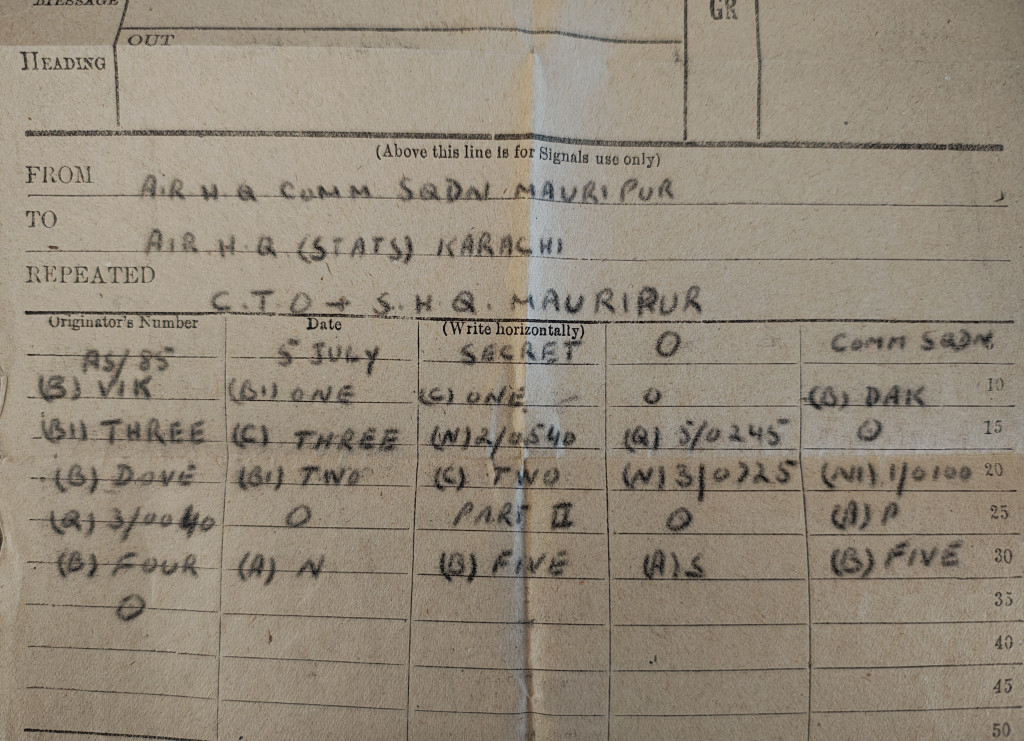 MESSAGE
GR
OUT
HEADING
(Above this line is for Signals use only)
FROM AIR H Q COMM SQDN MAURIPUR
TO AIR H.Q (STATS) KARACHI
REPEATED C.T.O + S.H.Q. MAURIPUR
Originator's Number Date (Write horizontally)
AS/85 5 JULY SECRET O COMM SQDN.
(B) VIK (B1) ONE (C) ONE O (B) DAK 10
(B1) THREE (C) THREE (N)2/0540 (Q) 5/0245 O 15
(B) DOVE (B1) TWO (C) TWO (N)3/0725 (N1) 1/0100 20
(Q) 3/0040 O PART II O (A) P 25
(B) FOUR (A) N (B) FIVE (A) S (B) FIVE 30
O 35
40
45
50